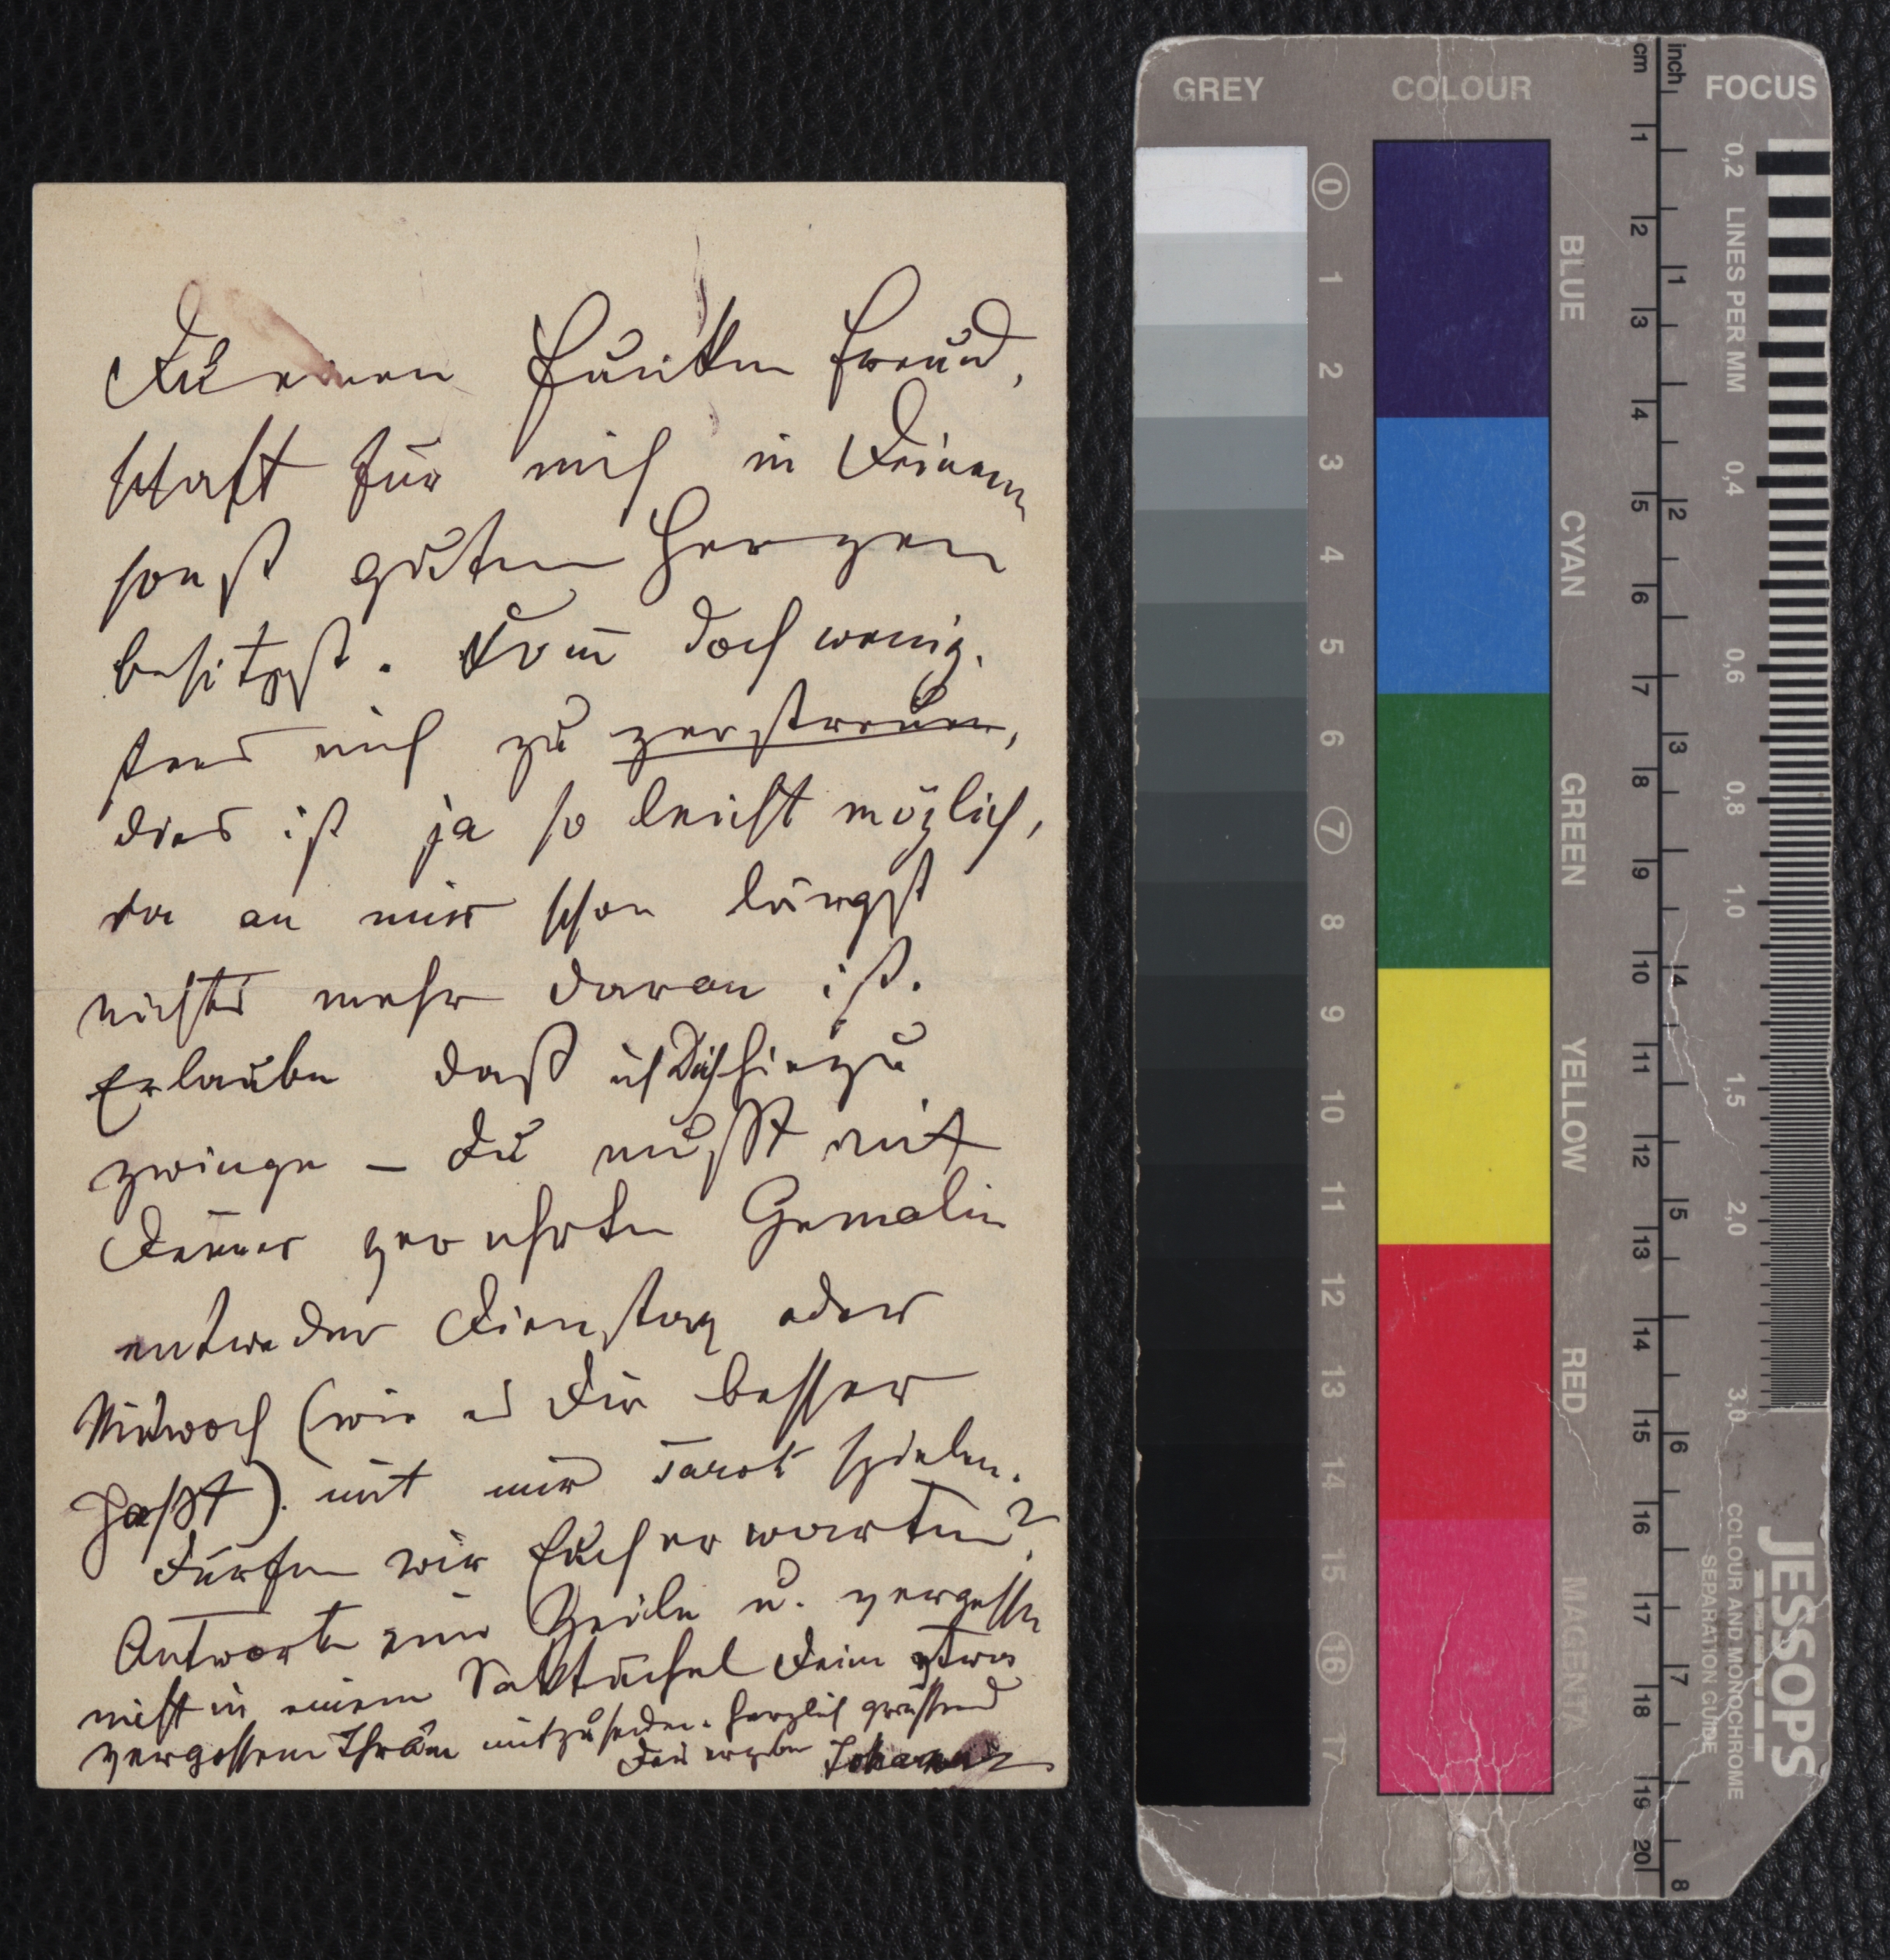 Du einen Funken Freund,
schaft für mich in Deinem
sonst guten Herzen
besitzst. Kom̅ doch wenig.
stens mich zu zerstreuen,
dies ist ja so leicht möglich,
da an mir schon längst
nichts mehr daran ist.
Erlaube daß ich Dich hiezu
zwinge – Du mußt mit
Deiner verehrten Gemalin
entweder Dienstag oder
Mittwoch (wie es Dir besser
paßt). mit mir Tarok spielen.
Dürfen wir Euch erwarten?
Antworte eine Zeile u. vergesse
nicht in einem Sacktüchel Deine etwa
vergossenen Thränen mitzusenden. Herzlich grüssend
Dein ergebener Johann
GREY COLOUR FOCUS
cm inch
0 1 2 3 4 5 6 7 8 9 10 11 12 13 14 15 16 17
BLUE
CYAN
GREEN
YELLOW
RED
MAGENTA
1 2 3 4 5 6 7 8 9 10 11 12 13 14 15 16 17 18 19 20
1 2 3 4 5 6 7 8
0,2 LINES PER MM 0,4 0,6 0,8 1,0 1,5 2,0 3,0
JESSOPS
COLOUR AND MONOCHROME
SEPARATION GUIDE